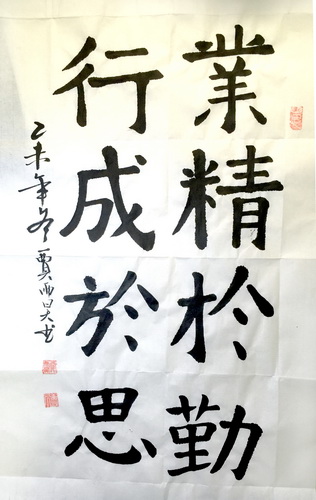 業精於勤
行成於思
乙未年冬賈西日大书